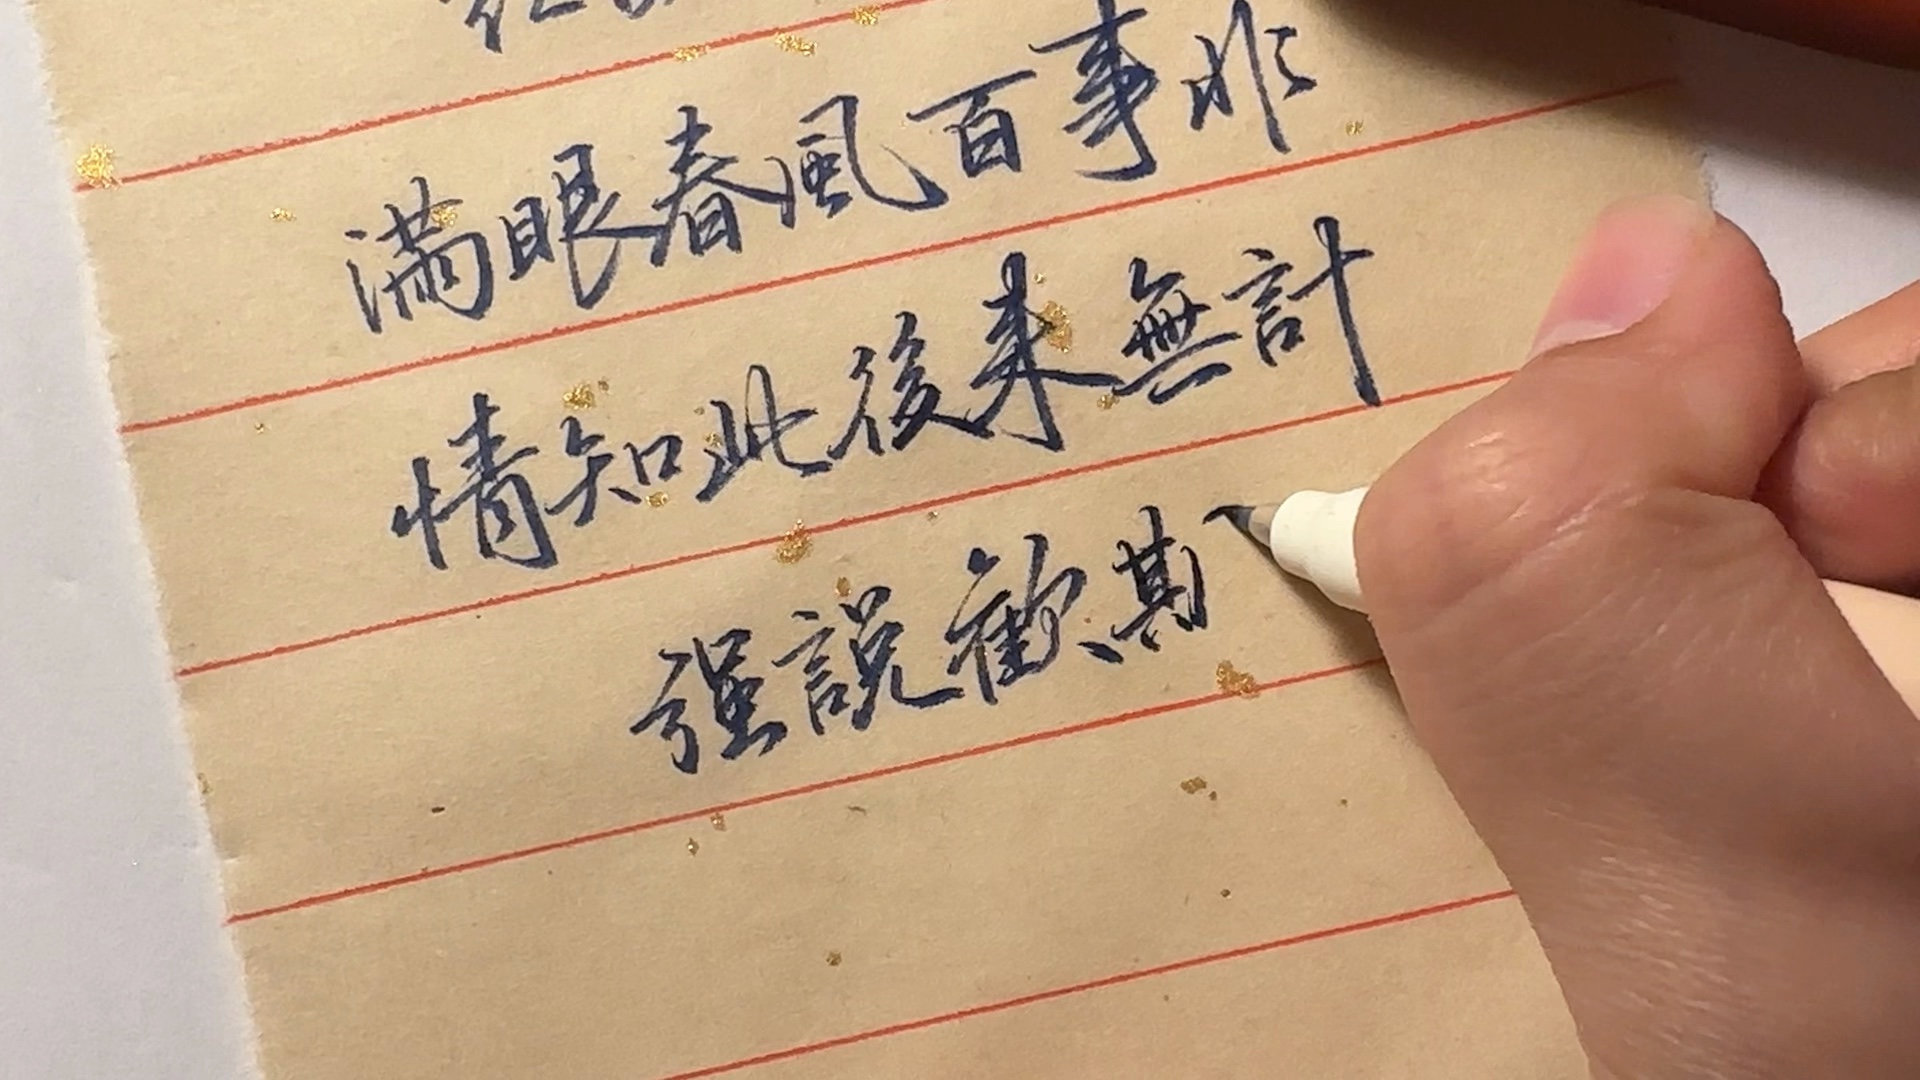 滿眼春風百事非
情知此後来無計
强說歡其